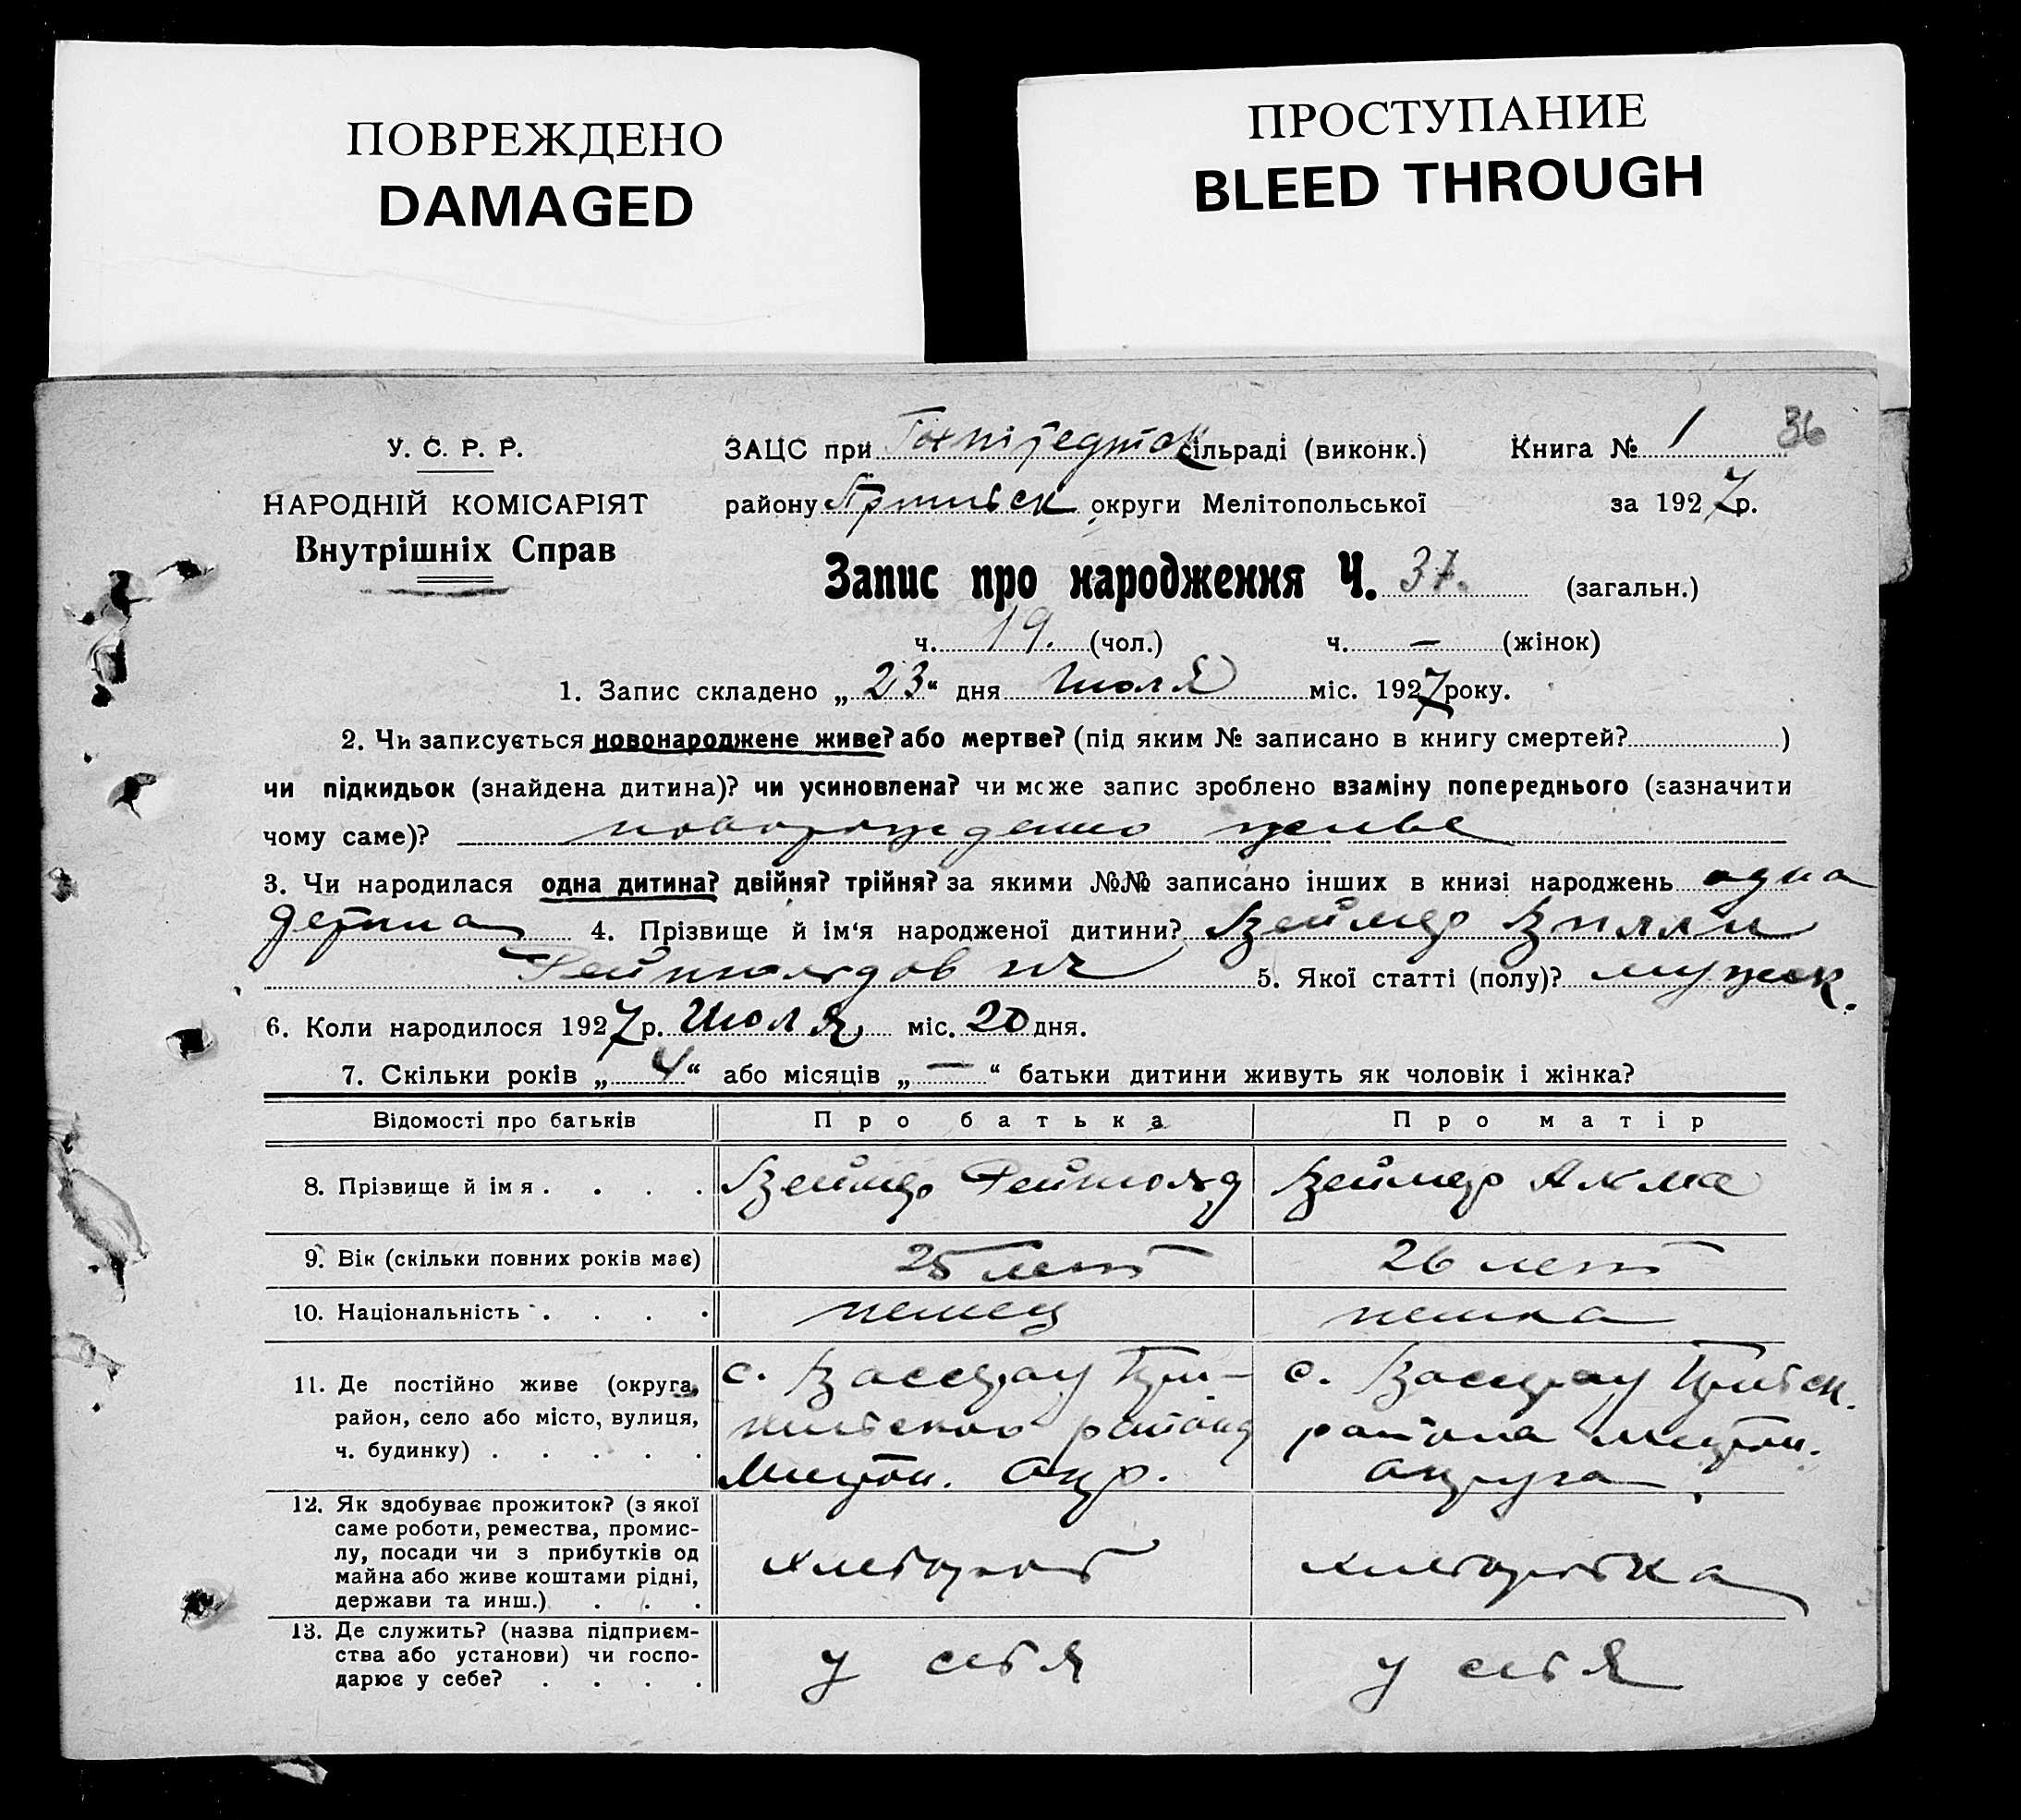 ПОВРЕЖДЕНО
DAMAGED
ПРОСТУПАНИЕ
BLEED THROUGH
У. С. Р. Р.
НАРОДНІЙ КОМІСАРІЯТ
Внутрішніх Справ
ЗАЦС при сільраді (виконк.) Книга № 1 36
району округи Мелітопольської за 1927 р.
Запис про народження Ч. 37. (загальн.)
ч. 19. (чол.) ч. — (жінок)
1. Запис складено „ 23 “ дня Июля міс. 1927 року.
2. Чи записується новонароджене живе? або мертве? (під яким № записано в книгу смертей? )
чи підкидьок (знайдена дитина)? чи усиновлена? чи може запис зроблено взаміну попереднього (зазначити
чому саме)? новорожденно живе
3. Чи народилася одна дитина? двійня? трійня? за якими №№ записано інших в книзі народжень одна
4. Прізвище й ім‘я народженої дитини? Веймер Вилли
Рейнгольдович 5. Якої статті (полу)? мужск.
6. Коли народилося 1927 р. Июля міс. 20 дня.
7. Скільки років „ 4 “ або місяців „ — “ батьки дитини живуть як чоловік і жінка?
Відомості про батьків Про батька Про матір
8. Прізвище й імя . . . . Веймер Рейнгольд Веймер Алма
9. Вік (скільки повних років має) 25 лет 26 лет
10. Національність . . . . немец немка
11. Де постійно живе (округа, с. Вассерау При- с. Вассерау Пришибск.
район, село або місто, вулиця, района района
ч. будинку) . . . . . Мелитоп. Окр. округа
12. Як здобуває прожиток? (з якої
саме роботи, ремества, промис-
лу, посади чи з прибутків од
майна або живе коштами рідні, хлебороб хлеборобка
держави та инш.) . . .
13. Де служить? (назва підприєм-
ства або установи) чи госпо- у себя у себя
дарює у себе? . . . .